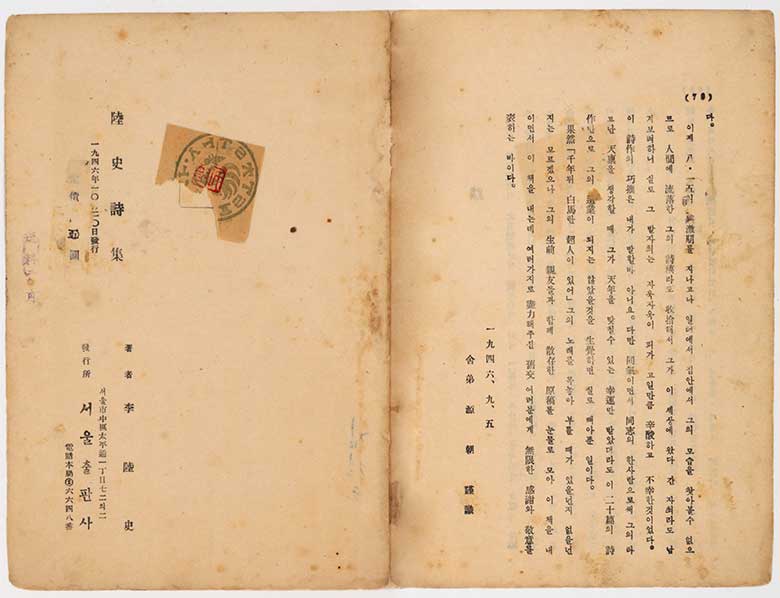 다。
이제 八·一五의 感激期를 지나고나 일터에서 집안에서 그의 모습을 찾아볼수 없으
므로 人間에 流落한 그의 詩稿라도 收拾해서 그가 이 세상에 왔다 간 자최라도 남
겨보려하니 실로 그 발자최는 자욱자욱이 피가 고일만큼 辛酸하고 不幸한것이었다。
이 詩作의 巧拙은 내가 말할바 아니요。다만 同氣이면서 同志의 한사람으로써 그의 타
고난 天稟을 생각할 때 그가 天年을 맞칠수 있는 幸運만 탔었더라도 이 二十篇의 詩
作만으로 그의 遺業이 되지는 않았을것을 生覺하면 실로 뼈아픈 일이다。
果然「千年뒤 白馬탄 超人이 있어」그의 노래를 목놓아 부를 때가 있을넌지 없을넌
지는 모르겠으나 그의 生前 親友들과 함께 散存한 原稿를 눈물로 모아 이 책을 내
이면서 이 책을 내는데 여러가지로 힘力해주신 舊交 여러분에게 無限한 感謝와 敬意를
표하는 바이다。
一九四六、九、五
舍弟 源朝 謹識
陸史詩集
一九四六年一〇、二〇日發行
著者 李陸史
서울市中區太平通一丁目七二의二
發行所 서울출판사
電話本局②六六四八番